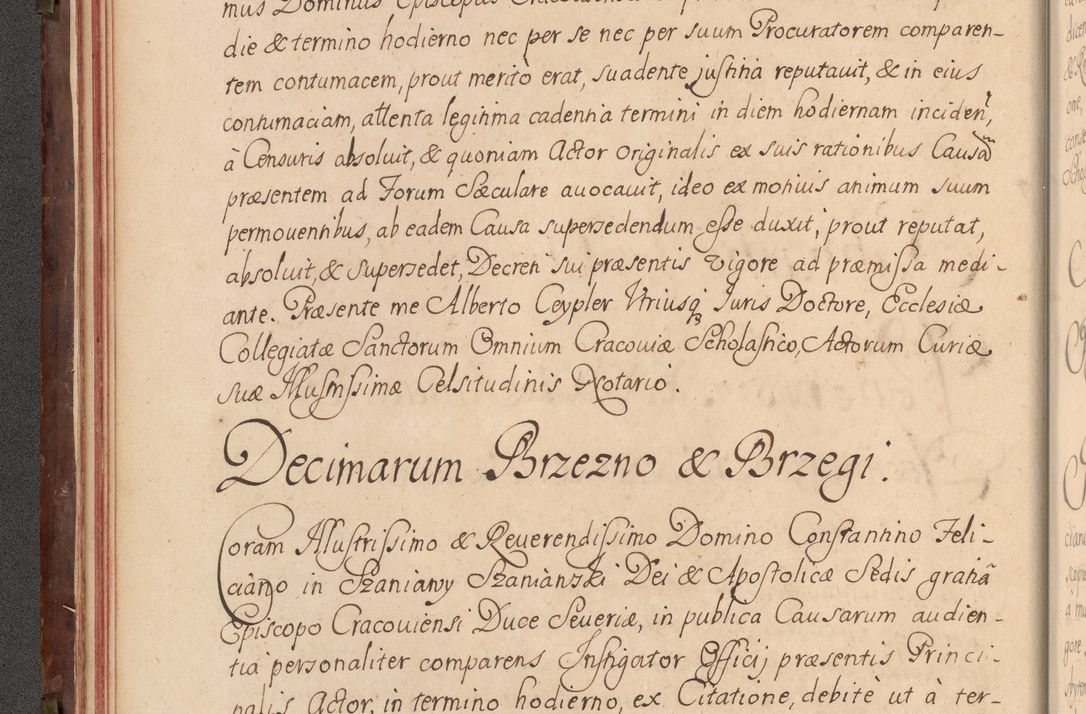 mus Dominus Episcopus
die & termino hodierno nec per se nec per suum Procuratorem comparen-
tem contumacem, prout meritò erat, suadente justitia reputavit, & in eius
contumaciam, attenta legitima cadentia termini in diem hodiernam inciden,
à Censuris absoluit, & quoniam Actor originalis ex suis rationibus Causã
præsentem ad Forum Sæculare auocauit, ideo ex motiuis animum suum
permouentibus, ab eadem Causa supersedendum esse duxit, prout reputat,
absoluit, & supersedet, Decreti sui præsentis vigore ad præmissa medi-
ante. Præsente me Alberto Ceypler Vtriusq Iuris Doctore, Ecclesiæ
Collegiatæ Sanctorum Omnium Cracouiæ Scholastico, Actorum Curiæ
suæ Illustrissimæ Celsitudinis Notario.
Decimarum Brzezno & Brzegi.
Coram Illustrissimo & Reuerendissimo Domino Constantino Feli-
ciano in Szaniawy Szaniawski Dei & Apostolicæ Sedis gratiã
Episcopo Cracouiensi Duce Seueriæ, in publica Causarum audien-
tia personaliter comparens Instigator Officij præsentis Princi-
palis Actor, in termino hodierno, ex Citatione, debitè ut à ter-